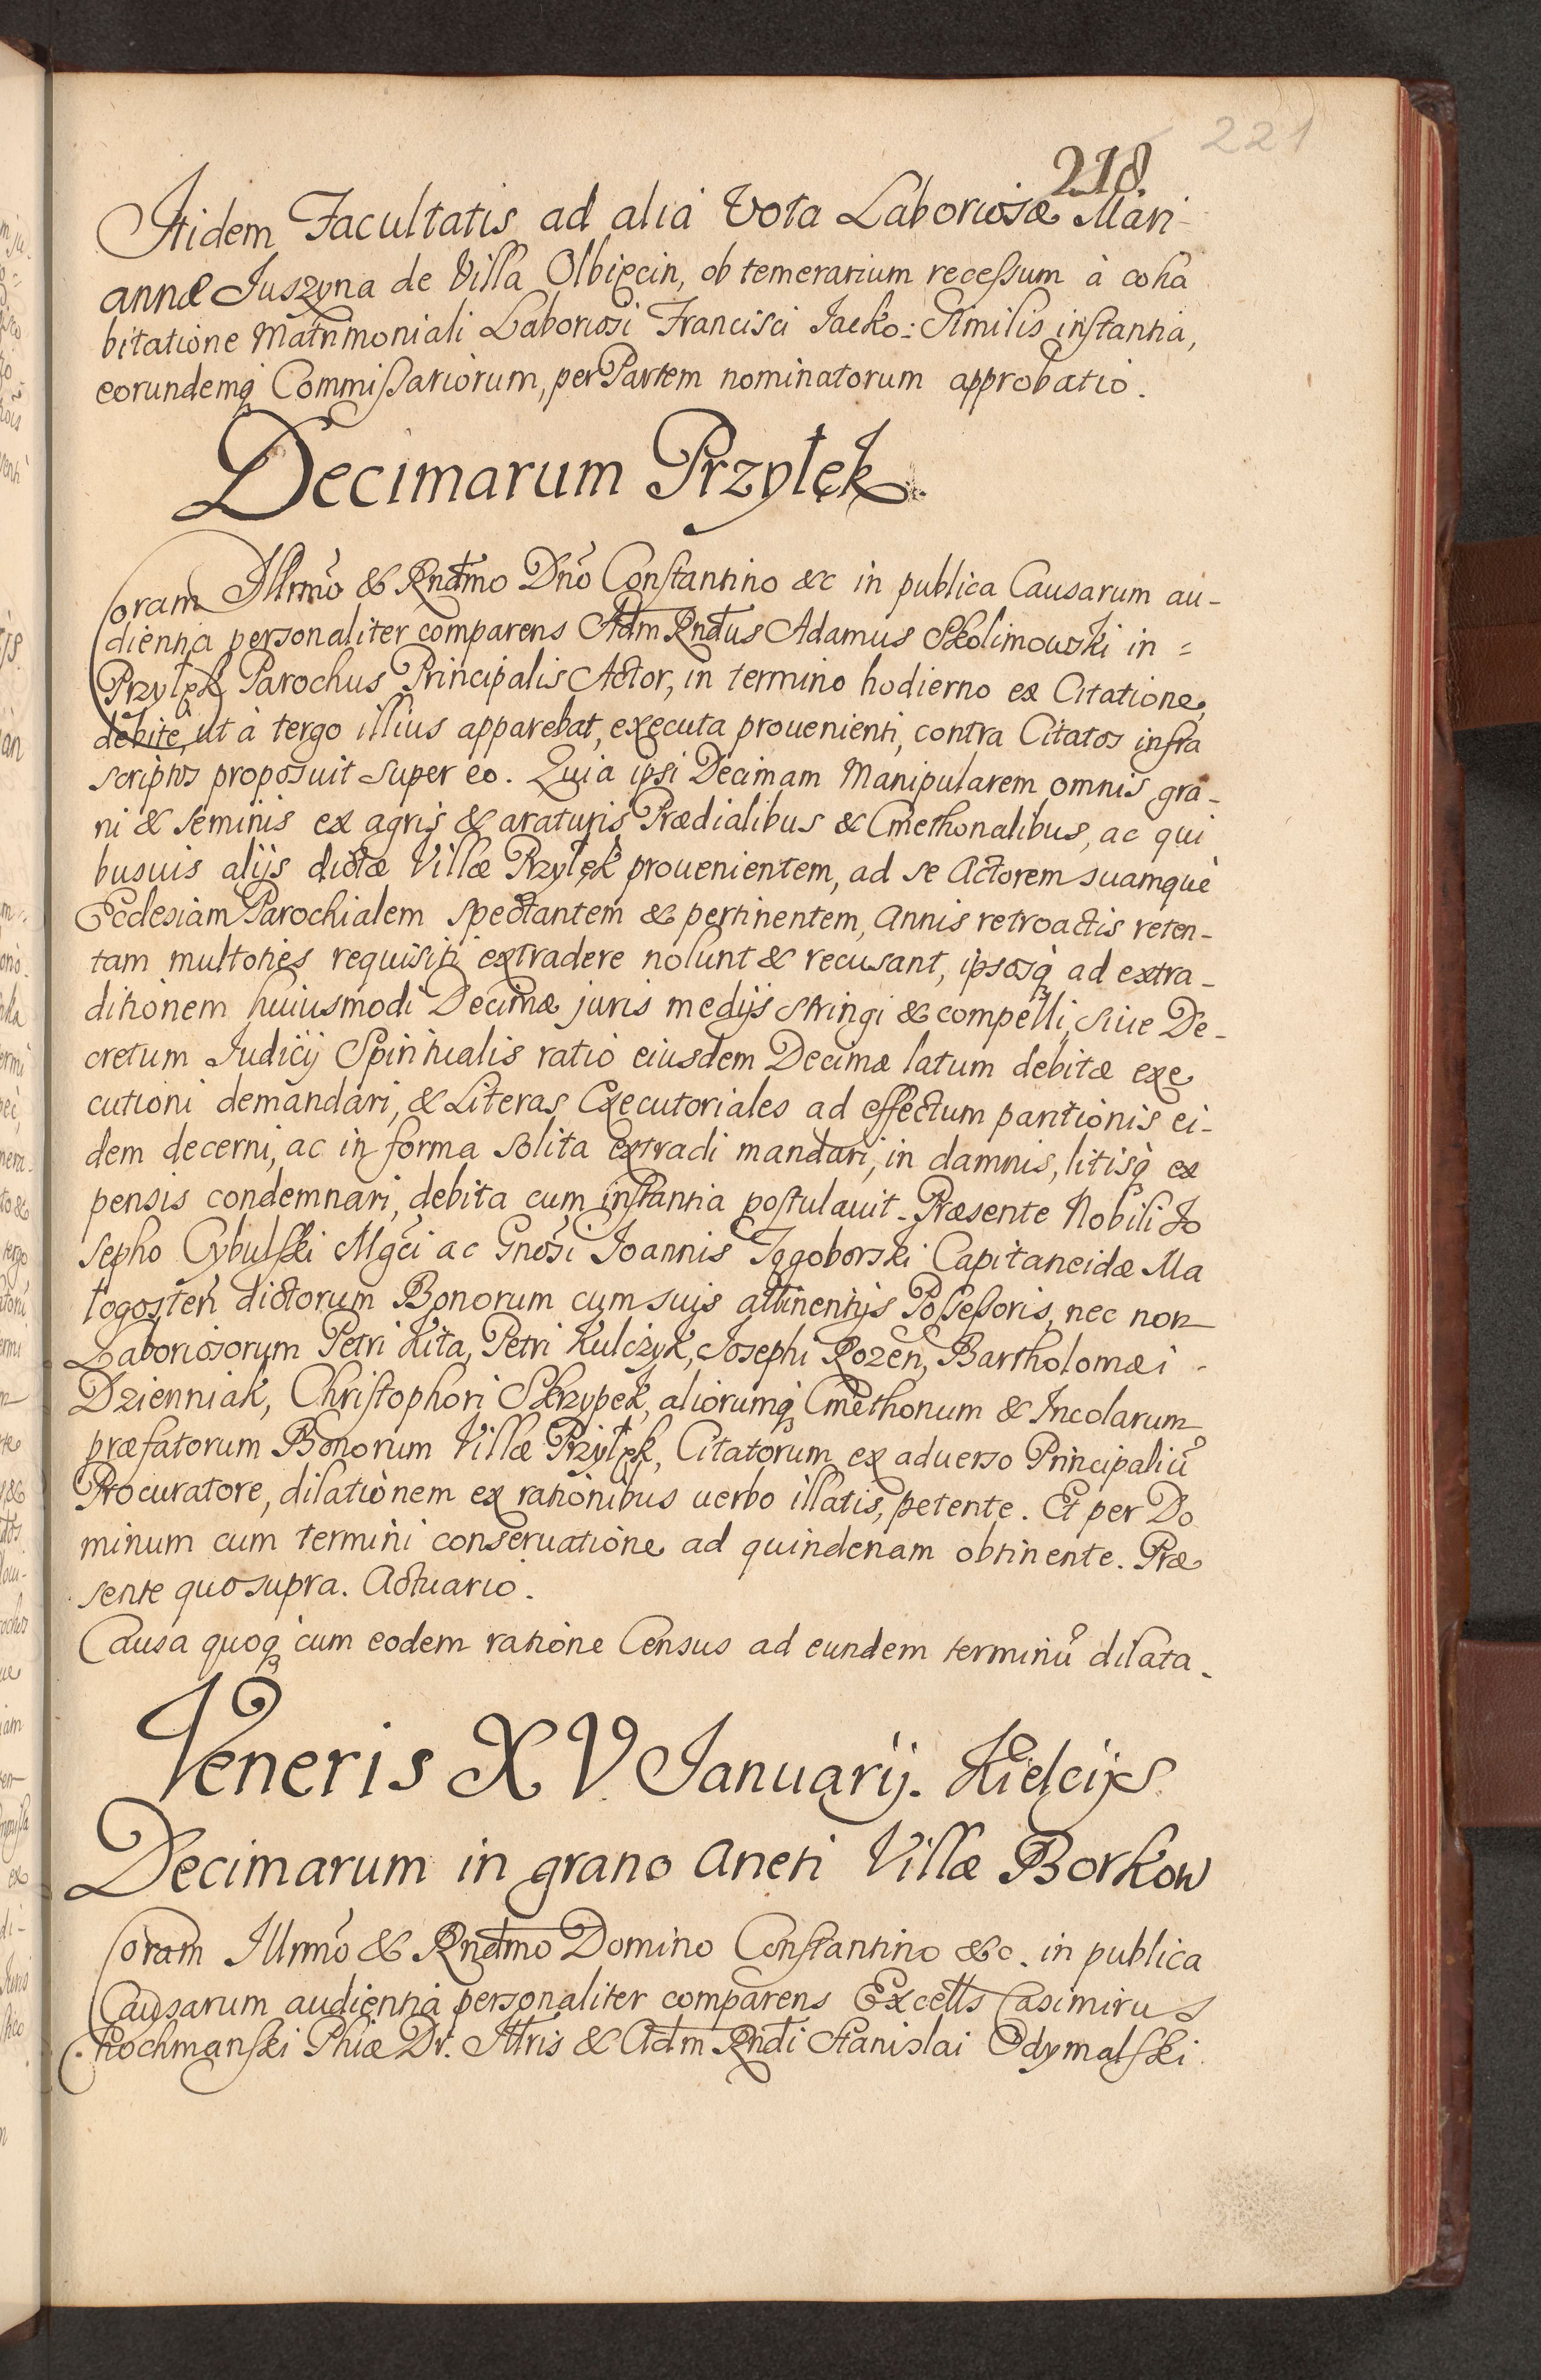 221
218.
Itidem Facultatis ad alia Vota Laboriosæ Mari-
annæ Juszyna de Villa Olbięcin, ob temerarium recessum à coha
bitatione Matrimoniali Laboriosi Francisci Jacko: Similis instantia,
eorundemq Commissariorum, per Partem nominatorum approbatio.
Decimarum Przyłęk.
Coram Illrmo & Rndmo Dno Constantino &c in publica Causarum au-
dientia personaliter comparens Adm Rndus Adamus Skolimowski in =
Przyłęk Parochus Principalis Actor, in termino hodierno ex Citatione,
debite, ut à tergo illius apparebat, executa prouenienti, contra Citatos infra
scriptos proposuit super eo. Quia ipsi Decimam Manipularem omnis gra-
ni & seminis ex agris & araturis Prædialibus & Cmethonalibus, ac qui
busuis alijs dictæ Villæ Przyłęk prouenientem, ad se Actorem suamquè
Ecclesiam Parochialem spectantem & pertinentem, annis retroactis reten-
tam multoties requisiti extradere nolunt & recusant, ipsosq ad extra-
ditionem huiusmodi Decimæ juris medijs stringi & compelli, siue De-
cretum Judicij Spiritualis ratio eiusdem Decimæ latum debitæ exe
cutioni demandari, & Literas Executoriales ad effectum paritionis ei-
dem decerni, ac in forma solita extradi mandari, in damnis, litisq ex
pensis condemnari, debita cum instantia postulauit. Præsente Nobili Jo
sepho Cybulski Mgci ac Gnosi Joannis Tęgoborski Capitaneidæ Ma
łogosteń dictorum Bonorum cum suis attinentijs Possessoris, nec non
Laboriosorum Petri Kita, Petri Kulczyk, Josephi Rozen, Bartholomæi -
Dzienniak, Christophori Skrzypek, aliorumq Cmethonum & Incolarum
præfatorum Bonorum Villæ Przyłęk, Citatorum ex aduerso Principaliũ
Procuratore, dilationem ex rationibus uerbo illatis, petente. Et per Do
minum cum termini conseruatione ad quindenam obtinente. Præ
sente quo supra. Actuario.
Causa quoq cum eodem ratione Census ad eundem terminũ dilata.
Veneris XV Januarij. Kielcijs.
Decimarum in grano aneti Villæ Borkow
Coram Illrmo & Rndmo Domino Constantino &c. in publica
Causarum audientia personaliter comparens Excells Casimirus
Rochmanski Phiæ Dr. Illris & Adm Rndi Stanislai Odymalski